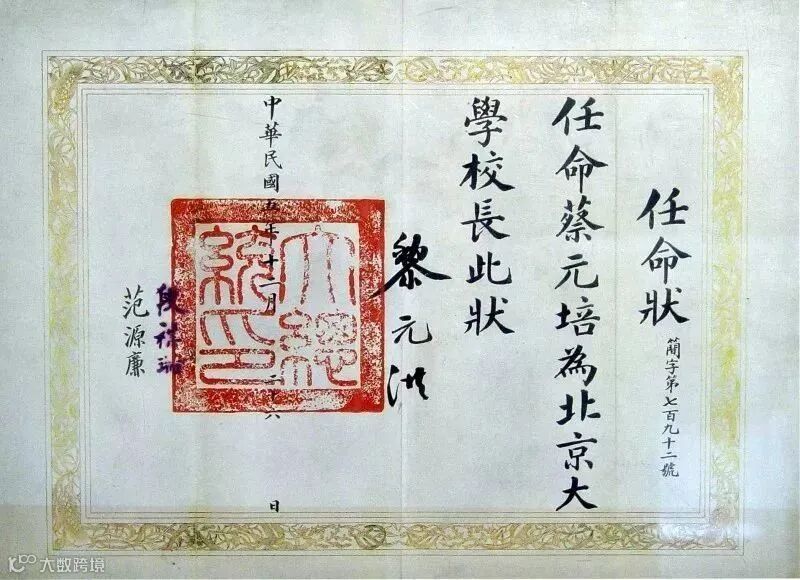 任命狀
簡字第七百九十二號
任命蔡元培為北京大
學校長此狀
黎元洪
大總
統印
中華民國五年十二月二十六日
段祺瑞
范源廉
大数跨境